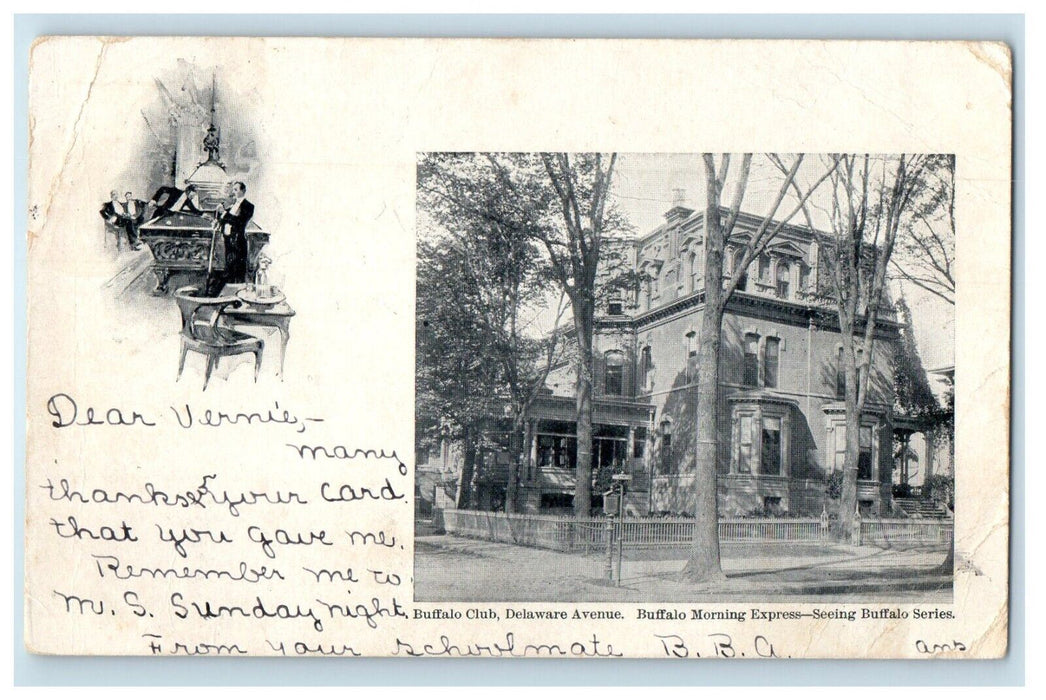 Dear Vernie,-
many
thanks for your card
that you gave me.
Remember me to
M. S. Sunday night.
From your schoolmate B. B. A.
ans
Buffalo Club, Delaware Avenue. Buffalo Morning Express—Seeing Buffalo Series.